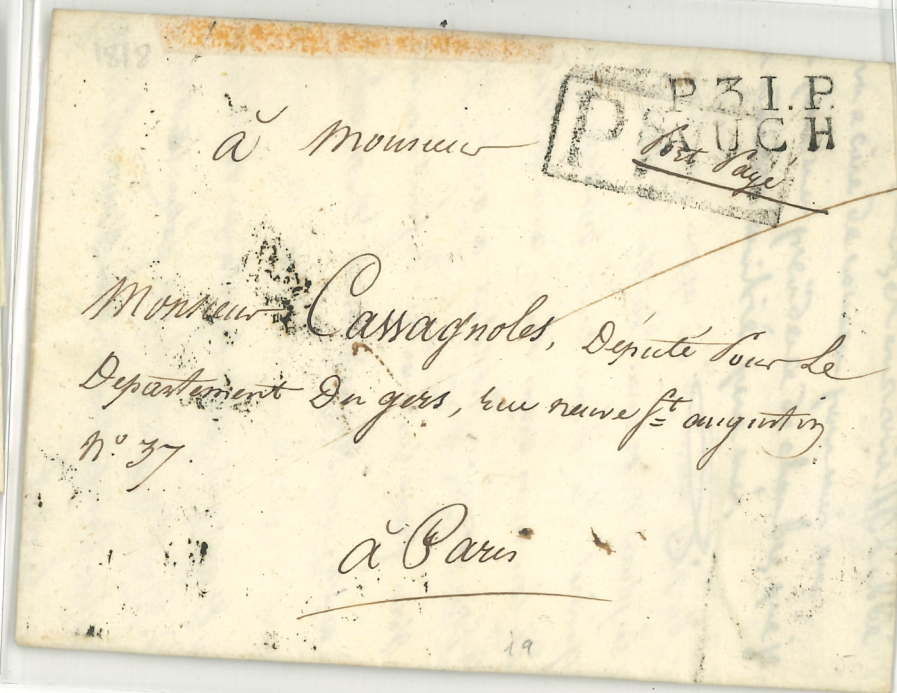 1818
P.31.P.
AUCH
P.P.
Port Payé
à Monsieur
Monsieur Cassagnoles, Député Pour Le
Departement Du gers, rue neuve St augustin
N° 37
à Paris
19